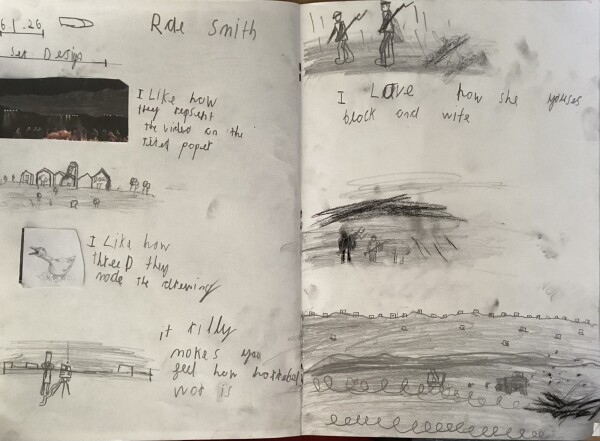 6 1.26
Rae Smith
Set Design
I Like how
they repsent
the video on the
riped popet
I Like how
three D they
made the drawing
it rilly
makes you
feel how horrabul
wor is
I Love how she youses
black and wite